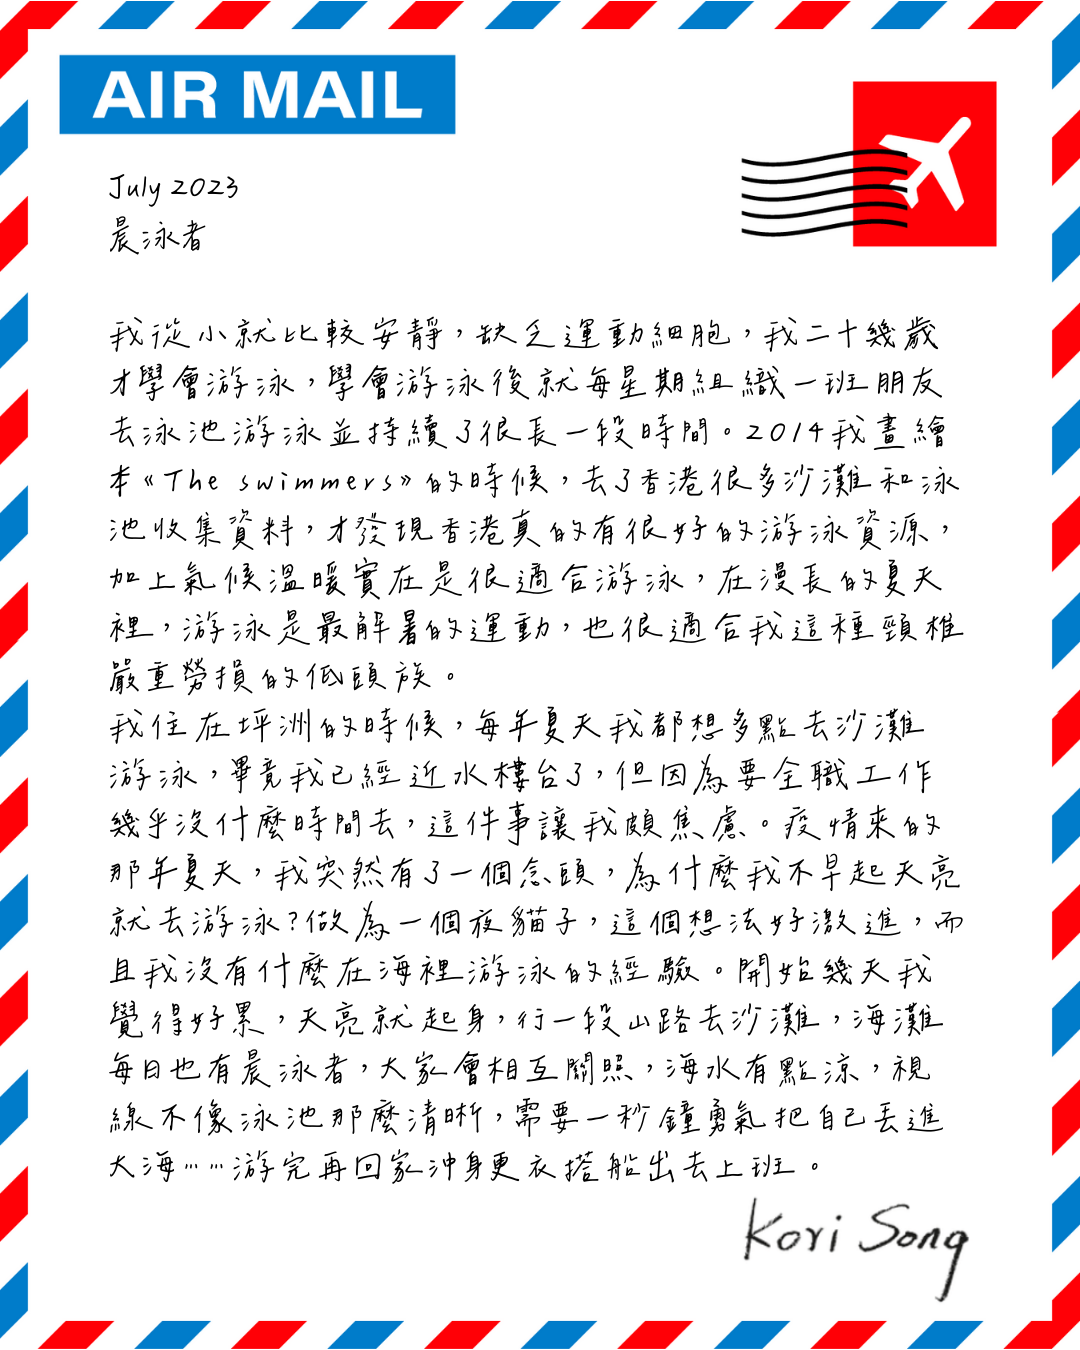 AIR MAIL
July 2023
晨泳者
我從小就比較安靜，缺乏運動細胞，我二十幾歲
才學會游泳，學會游泳後就每星期組織一班朋友
去泳池游泳並持續了很長一段時間。2014我畫繪
本《The swimmers》的時候，去了香港很多沙灘和泳
池收集資料，才發現香港真的有很好的游泳資源，
加上氣候溫暖實在是很適合游泳，在漫長的夏天
裡，游泳是最解暑的運動，也很適合我這種頸椎
嚴重勞損的低頭族。
我住在坪洲的時候，每年夏天我都想多點去沙灘
游泳，畢竟我已經近水樓台了，但因為要全職工作
幾乎沒什麼時間去，這件事讓我頗焦慮。疫情來的
那年夏天，我突然有了一個念頭，為什麼我不早起天亮
就去游泳？做為一個夜貓子，這個想法好激進，而
且我沒有什麼在海裡游泳的經驗。開始幾天我
覺得好累，天亮就起身，行一段山路去沙灘，海灘
每日也有晨泳者，大家會相互關照，海水有點涼，視
線不像泳池那麼清晰，需要一秒鐘勇氣把自己丟進
大海……游完再回家沖身更衣搭船出去上班。
Kori Song